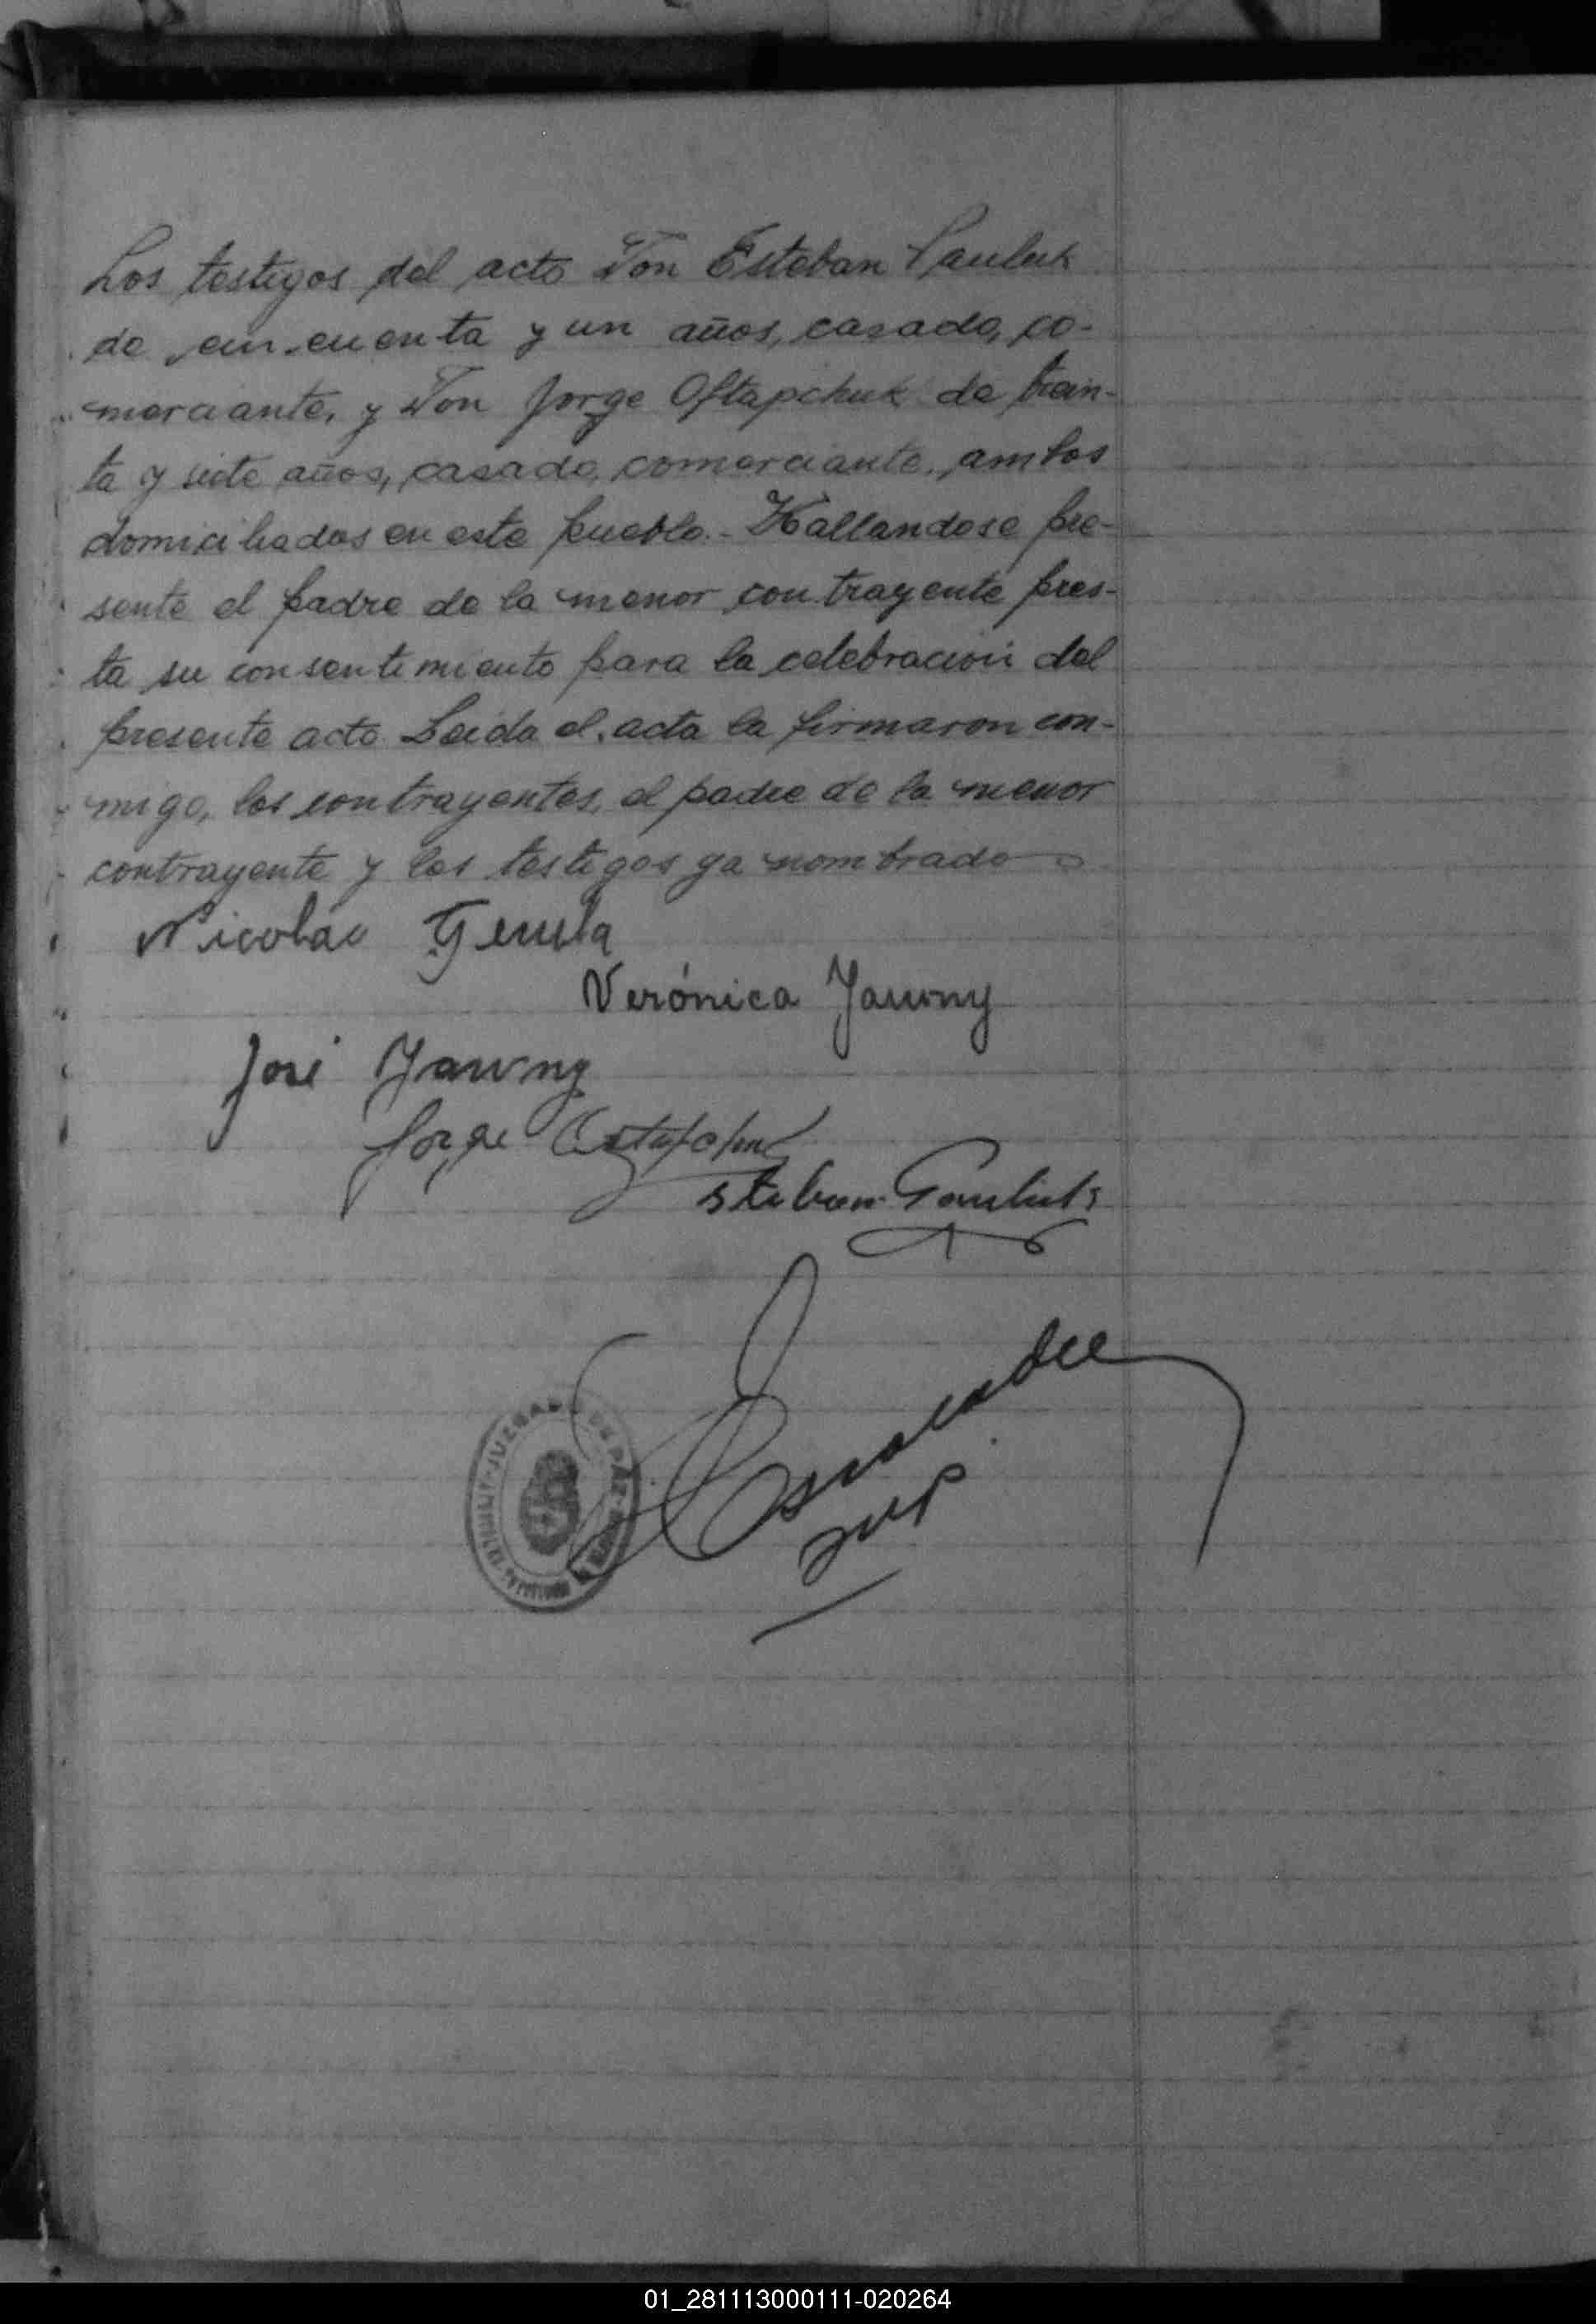 Los testigos del acto Don Esteban Pauluk
de cincuenta y un años, casado, co-
merciante, y Don Jorge Oftapchuk de trein-
ta y siete años, casado, comerciante, ambos
domiciliados en este pueblo.- Hallandose pre-
sente el padre de la menor contrayente pres-
ta su consentimiento para la celebración del
presente acto Leida el acta la firmaron con-
migo, los contrayentes, el padre de la menor
contrayente y los testigos ya nombrados
Nicolás
Verónica Jawny
José Jawny
Jorge
JUZGADO DE PAZ
01_281113000111-020264